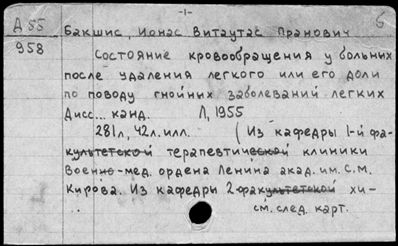 -1-
Д 55 Бакшис, Ионас Витаутас Прановиč б
958
Состояние кровообращения у больных
после удаления легкого или его доли
по поводу гнойных заболеваний легких
Дисс... канд. Л, 1955
281л, 42л.илл. (Из кафедры 1-й фа-
культетской терапевтической клиники
Военно-мед. ордена Ленина акад. им. С.М.
Кирова. Из кафедры 2 факультетской хи-
см. след. карт.